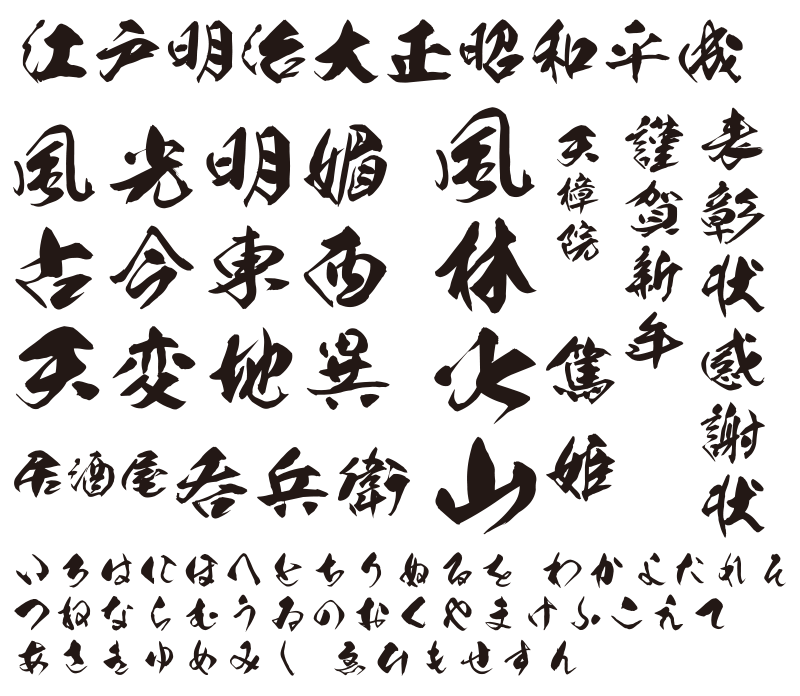 江戸明治大正昭和平成
風光明媚
古今東西
天変地異
居酒屋呑兵衛
風林火山
天樟院
篤姫
謹賀新年
表彰状感謝状
いろはにほへとちりぬるを わかよたれそ
つねならむうゐのおくやまけふこえて
あさきゆめみし ゑひもせすん